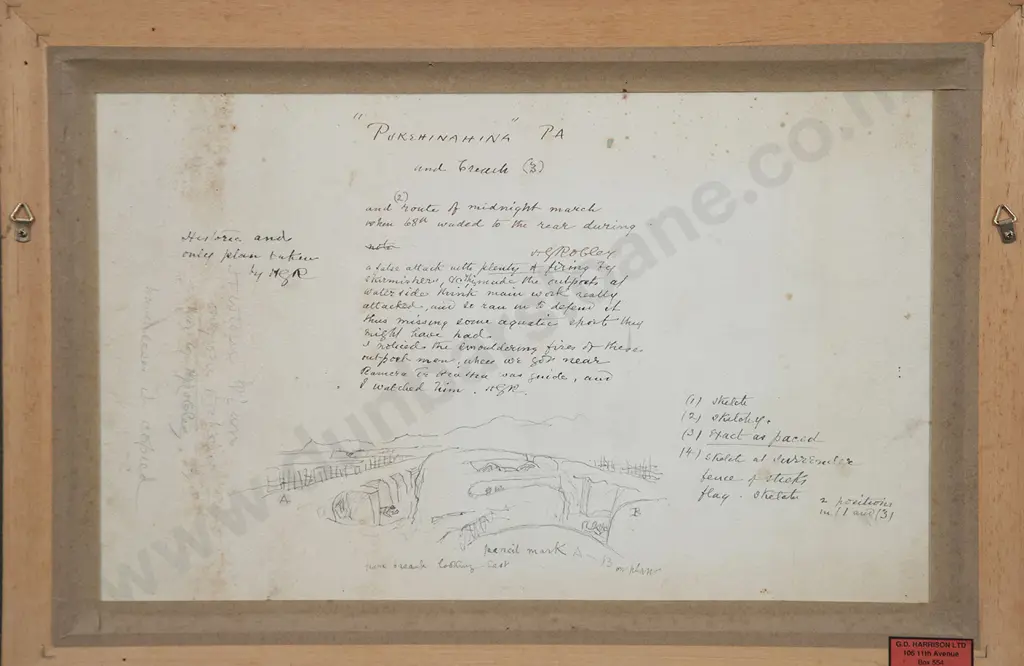 "PUKEHINAHINA" PA
and breach (3)
(2)
and route of midnight march
when 68th waded to the rear during
note
HGRobley
a false attack with plenty of firing by
skirmishers, made the outposts at
waterside think main work really
attacked, and so ran in to defend it
thus missing some aquatic sport they
might have had.
I noticed the smouldering fires of these
outpost men, when we got near
was guide, and
I watched him. HGR.
Historic and
only plan taken
by HGR
(1) sketch
(2) sketchy.
(3) Exact as paced
(4) sketch at surrender
fence of sticks
flag. sketch
2 positions
in (1 and (3)
A
B
pencil mark A - B on plan
near breach looking East
handsein I copied
www.dunbarsloane.co.nz
G.D. HARRISON LTD
106 11th Avenue
Box 554